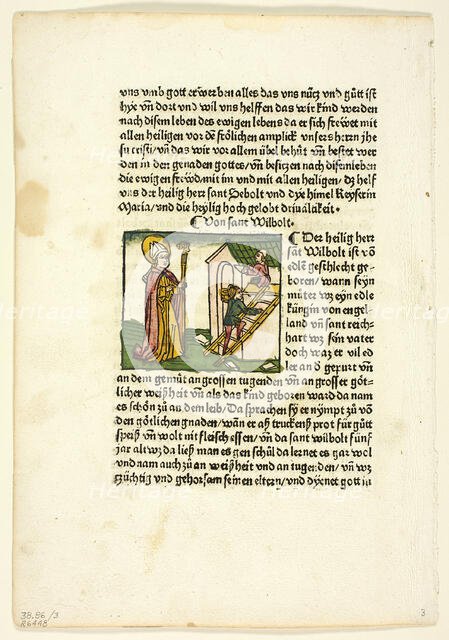 vns vmb gott erwerben alles das vns nücz vnd gůtt ist
hye vñ dort vnd wil vns helffen das wir kind werden
nach disem leben des ewigen lebens da er sich frewet mit
allen heiligen vor dẽ frölichen amplick vnsers herrn jhe
su cristi/vñ das wir vor allem übel behüt vñ bestet wer
den in den genaden gottes/vñ besiczen nach disem leben
die ewigen frewd/mit im vnd mit allen heiligen/dz helf
vns der heilig herr sant Sebolt vnd dye himel Keyserin
Maria/vnd die heylig hoch gelobt driualtikeit.
¶ Von sant Wilbolt.
¶ Der heilig herr
sãt Wilbolt ist võ
edlẽ geschlecht ge-
boren/wann seyn
můter wz eyn edle
küngin von engel-
land vñ sant reich-
hart wz sein vater
doch waz er vil ed
ler an d̕ gepurt vñ
an dem gemüt an grossen tugenden vñ an grosser göt-
licher weißheit vñ als das kind geboren ward da nam
es schön zů an dem leib/Da sprachen sy er nympt zů võ
den götlichen gnaden/wann er aß truckenß prot für gůtt
speiß vñ wolt nit fleisch essen/vñ da sant wilbolt fünf
jar alt wz da ließ man es gen schůl da lernet es gar wol
vnd nam auch zů an weißheit vnd an tugenden/vñ wz
züchtig vnd gehorsam seinen eltern/vnd dyenet gott in
Heritage
Heritage
Heritage
38.86/3
R6448
3